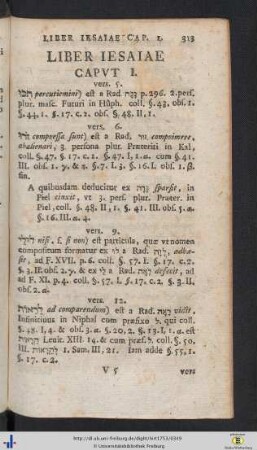 LIBER IESAIAE CAP. I. 313
LIBER IESAIAE
CAPVT I.
vers. 5.
percutiemini) est a Rad. נכה p. 296. 2. pers.
plur. masc. Futuri in Hüph. coll. §. 43. obs. 1.
§. 44. 1. §. 17. c. 2. obs. §. 48. II. 1.
vers. 6.
compressa sunt) est a Rad. comprimere,
abalienari, 3. persona plur. Praeteriti in Kal,
coll. §. 47. §. 17. c. 1. §. 47. I. 1. a. cum §. 41.
III. obs. 1. §. 7. I. 3. §. 16. I. obs. 1.
fin.
A quibusdam deducitur ex זרה sparsit, in
Piel cinxit, vt 3. pers. plur. Praeter. in
Piel, coll. §. 48. II, 1. §. 41. III. obs. 5. a.
§. 16. III. a. 4.
vers. 9.
לולי nisi, s. si non) est particula, quae vt nomen
compositum formatur ex לו a Rad. לוה, adhae-
sit, ad F. XVII. p. 6. coll. §. 57. I. §. 17. c. 2.
§. 3. obs. 2. & ex לא a Rad. defecit, ad
ad F. XI. p. 4. coll. §. 57. I. §. 17. c. 2. §. 3. II.
obs. 2. a.
vers. 12.
לראות ad comparendum) est a Rad. ראה vidit,
Infinitiuus in Niphal cum praefixo ל, qui coll.
§. 48. I, 4. & obs. 3. a. §. 20, 2. §. 13. I. 1. a. est
Leuit. XIII. 14. & cum praef. ל coll. §. 50.
III. 1. Sam. III, 21. Iam adde §. 55, 1.
§. 17. c. 2.
V 5 vers
http://dl.ub.uni-freiburg.de/diglit/
© Universitätsbibliothek Freiburg